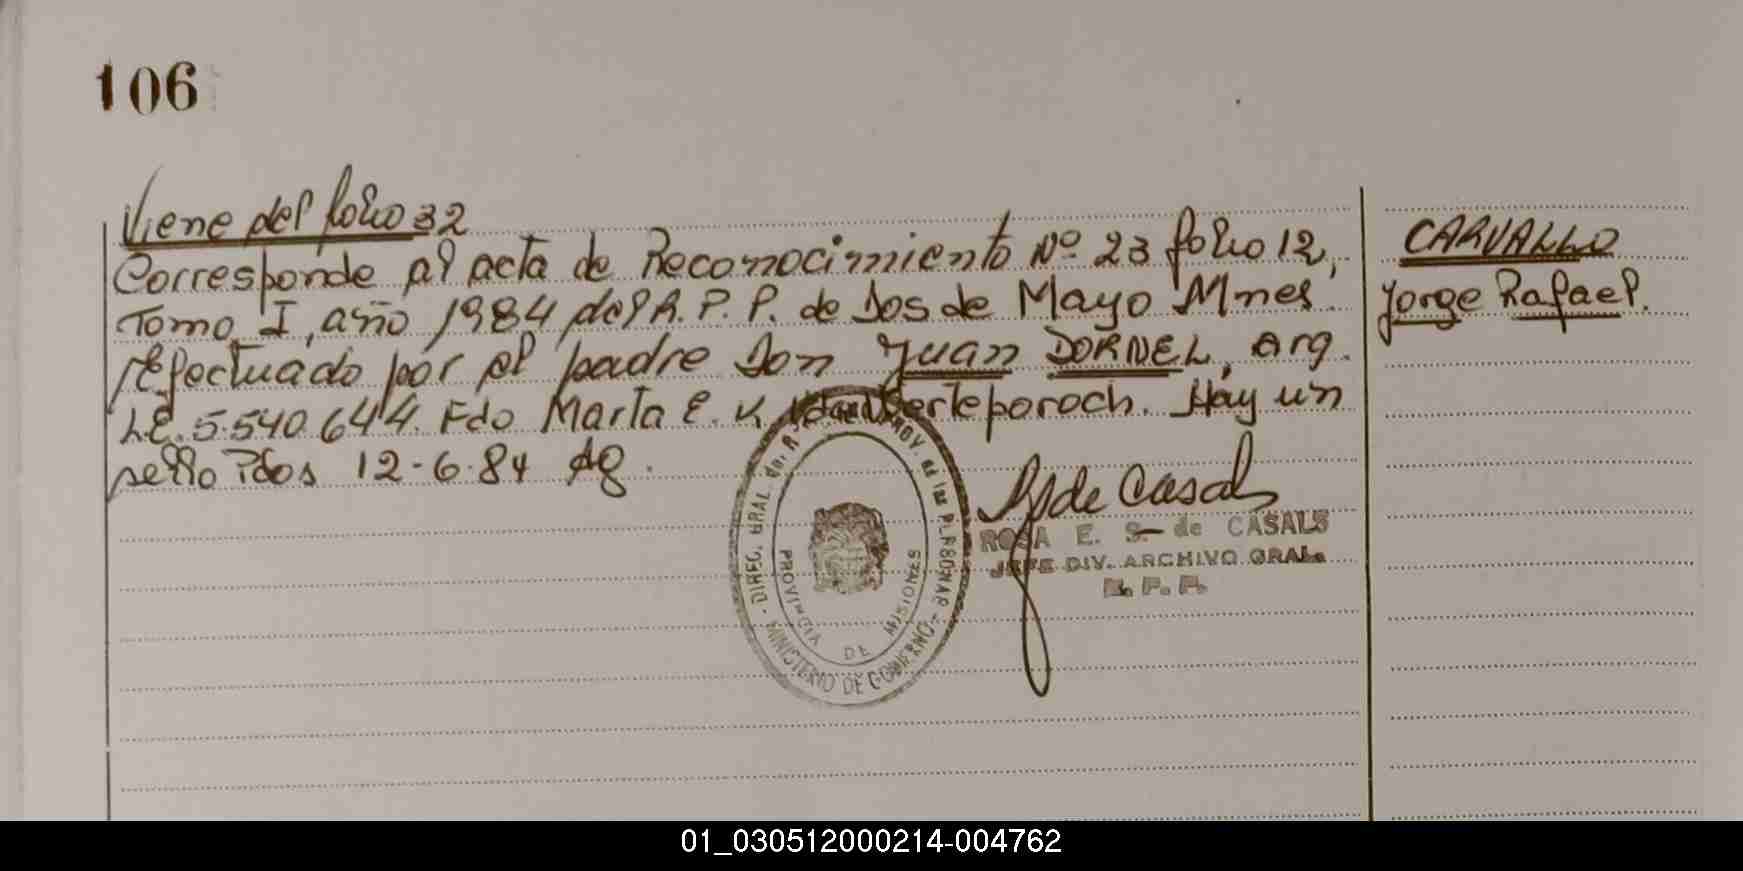 106
Viene del folio 32
Corresponde al acta de Reconocimiento Nº 23 folio 12,
Tomo I, año 1984 del R. P. P. de Dos de Mayo Mnes.
efectuado por el padre Don Juan DORNEL, arg.
L.E. 5.540.644. Fdo Marta E. K. de Berteporoch. Hay un
sello Pdos 12-6-84
CARVALLO
Jorge Rafael.
de Casals
ROSA E. S. de CASALS
JEFE DIV. ARCHIVO GRAL.
R. P. P.
DIREC. GRAL. del R PROV. de las PERSONAS
MINISTERIO DE GOBIERNO
PROVINCIA DE MISIONES
01_030512000214-004762